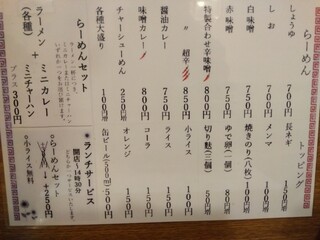 らーめん
しょうゆ 700円
しお 700円
白味噌 750円
赤味噌 750円
特製合わせ辛味噌 800円
〃 超辛 850円
醤油カレー 750円
味噌カレー 800円
チャーシューめん 250円
各種大盛り 100円
トッピング
長ネギ 150円
メンマ 100円
焼きのり(八枚) 100円
ゆで卵(一個) 80円
切り麩(三個) 50円
小ライス 100円
ライス 150円
コーラ 150円
オレンジ 150円
缶ビール(500ml) 500円
らーめんセット
ラーメン(各種)
+
ミニカレー
ミニチャーハン
プラス300円
ランチサービス
開店~14時30分
らーめんセット→+250円
小ライス無料